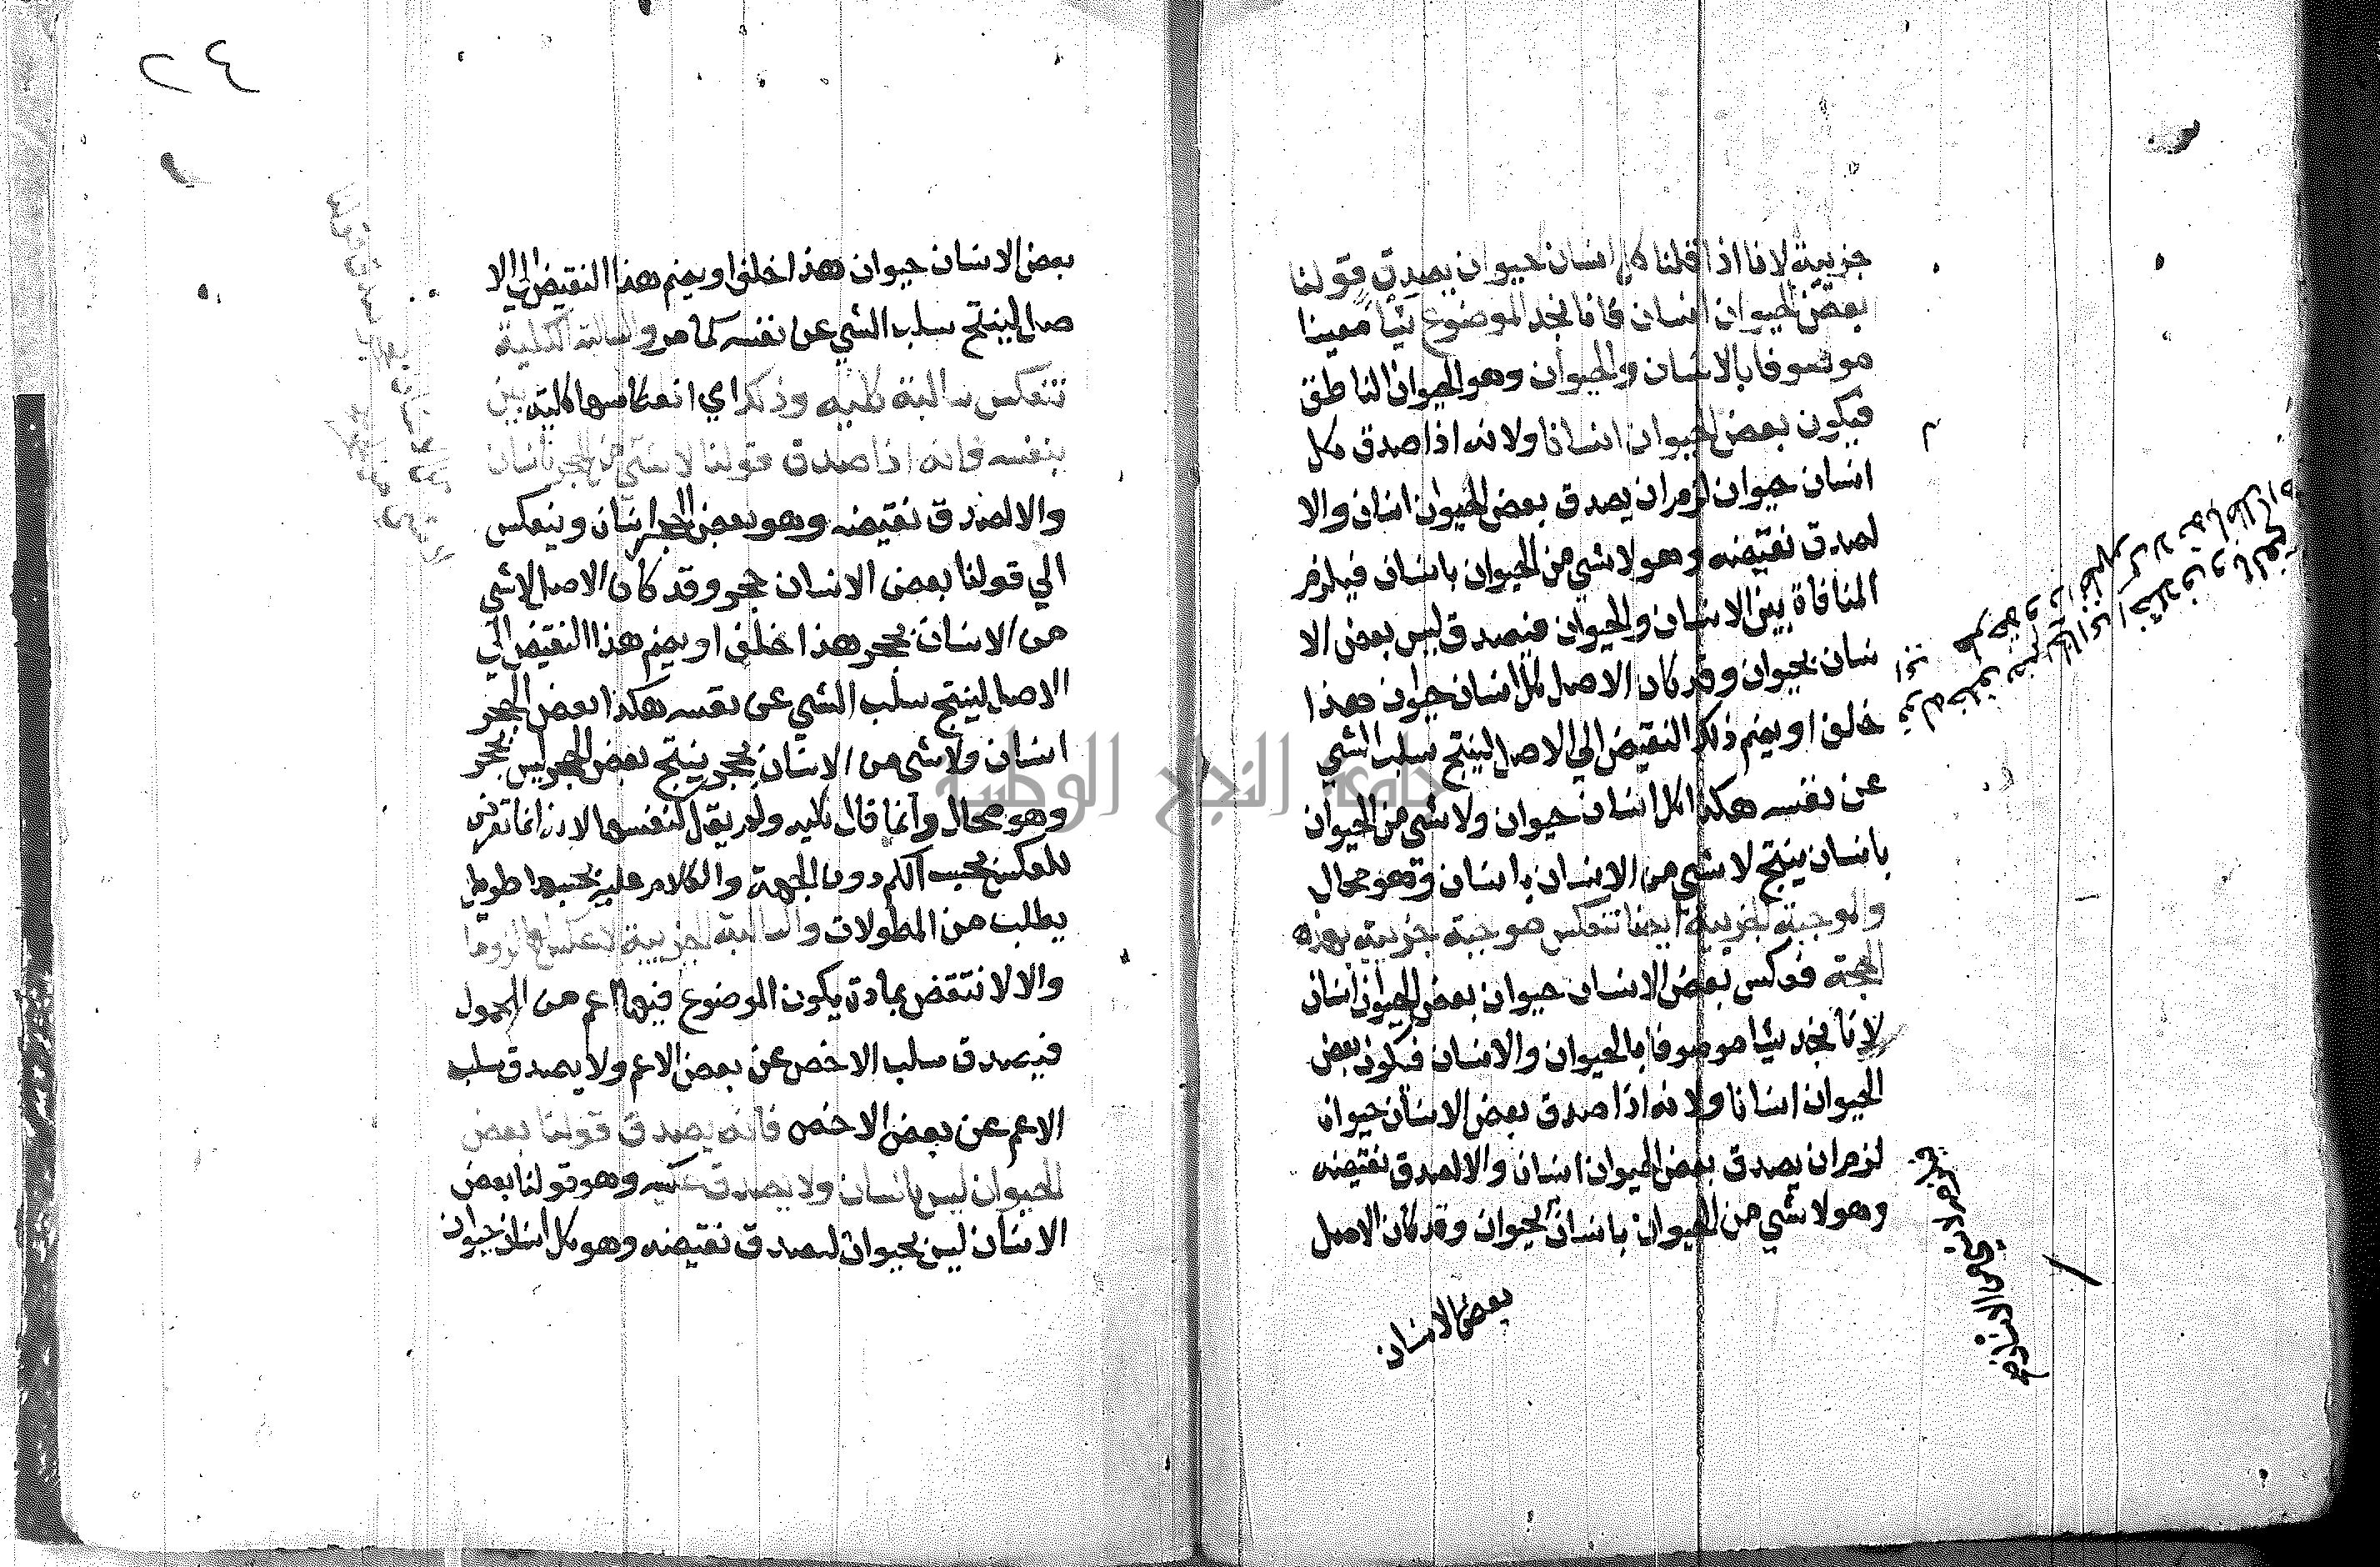 جزيية لانا اذا قلنا كل انسان حيوان يصدق قولنا
بعض الحيوان انسان فانا نجد الموضوع شيأ معينا
موصوفا بالانسان والحيوان وهو الحيوان الناطق
فيكون بعض الحيوان انسانا ولانه اذا صدق كل
انسان حيوان لزم ان يصدق بعض الحيوان انسان والا
لصدق نقيضه وهو لا شي من الحيوان بانسان فيلزم
المنافاة بين الانسان والحيوان فيصدق ليس بعض الا
نسان بحيوان وقد كان الاصل كل انسان حيوان هذا
خلف او يضم ذلك النقيض الي الاصل لينتج سلب الشي
عن نفسه هكذا كل انسان حيوان ولا شي من الحيوان
بانسان ينتج لا شي من الانسان بانسان وهو محال
والموجبة الجزيية ايضا تنعكس موجبة جزيية بهذه
الحجة فعكس بعض الانسان حيوان بعض الحيوان انسان
لانا نجد شيا موصوفا بالحيوان والانسان فيكون بعض
الحيوان انسانا ولانه اذا صدق بعض الانسان حيوان
لزم ان يصدق بعض الحيوان انسان والا لصدق نقيضه
وهو لا شي من الحيوان بانسان بحيوان وقد كان الاصل
بعض الانسان
٤٢
بعض الانسان حيوان هذا خلف او يضم هذا النقيض الي الا
صل لينتج سلب الشي عن نفسه كما مر والسالبة الكلية
تنعكس سالبة كلية وذلك اي انعكاسها كلية بين
بنفسه فانه اذا صدق قولنا لا شي من الحجر بانسان
والا لصدق نقيضه وهو بعض الحجر انسان وينعكس
الي قولنا بعض الانسان حجر وقد كان الاصل لا شي
من الانسان بحجر هذا خلف او يضم هذا النقيض الي
الاصل لينتج سلب الشي عن نفسه هكذا بعض الحجر
انسان ولا شي من الانسان بحجر ينتج بعض الحجر ليس بحجر
وهو محال وانما قال كلية ولم يقل لنفسها لانه انما تعرض
للعكس بحسب الكم دون الجهة والكلام عليه بحسبها طويل
يطلب من المطولات والسالبة الجزيية لا عكس لها لزوما
والا لانتقض بمادة يكون الموضوع فيها اعم من المحمول
فيصدق سلب الاخص عن بعض الاعم ولا يصدق سلب
الاعم عن بعض الاخص فانه يصدق قولنا بعض
الحيوان ليس بانسان ولا يصدق عكسه وهو قولنا بعض
الانسان ليس بحيوان لصدق نقيضه وهو كل انسان حيوان
جامعة النجاح الوطنية